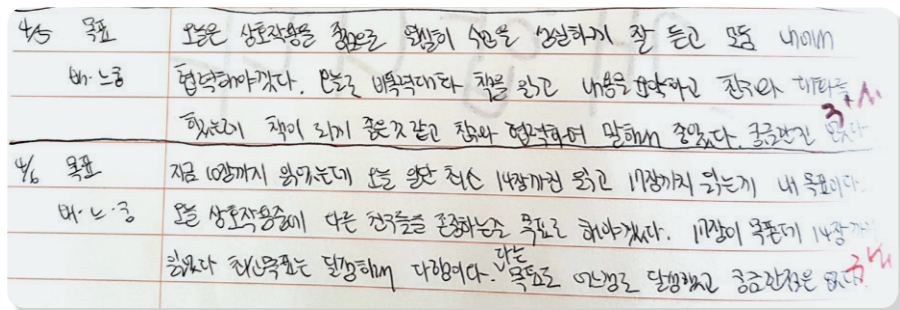 4/5 목표 오늘은 상호작용을 중심으로 열심히 수업을 성실하게 잘 듣고 모둠 내에서
배·느·궁 협력해야겠다. 오늘도 비폭력대화 책을 읽고 내용을 요약하고 친구와 대화를
했는데 책이 되게 좋은 것 같고 친구와 협력하여 말해서 좋았다. 궁금한건 없다
4/6 목표 지금 10장까지 읽었는데 오늘 일단 최소 14장까진 읽고 17장까지 읽는게 내 목표이다.
배·느·궁 오늘 상호작용중에 다른 친구들을 존중하는 목표로 해야겠다. 17장이 목푠데 14장까지
읽었다 최소목표는 달성해서 다행이다. 다른 목표도 어느정도 달성했고 궁금한점은 없다.